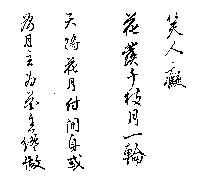 笑人癡
花叢千枝月一輪
天將花月付閒身或
為月主為花主繼傲